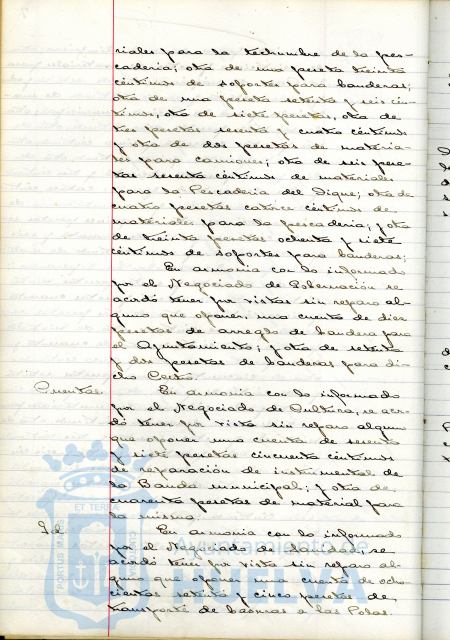 riales para la techumbre de la pes-
cadería; otra de una peseta treinta
céntimos de soportes para banderas;
otra de una peseta setenta y seis cén-
timos; otra de siete pesetas, otra de
tres pesetas sesenta y cuatro céntimos
y otra de dos pesetas de materia-
les para camiones; otra de seis pese-
tas sesenta céntimos de materiales
para la Pescadería del Dique; otra de
cuatro pesetas catorce céntimos de
materiales para la pescadería; y otra
de treinta pesetas ochenta y siete
céntimos de soportes para banderas;
En armonía con lo informado
por el Negociado de Gobernación se
acordó tener por vistas sin reparo al-
guno que oponer, una cuenta de diez
pesetas de arreglo de bandera para
el Ayuntamiento; y otra de setenta
y dos pesetas de banderas para di-
cho Centro.
Cuentas. En armonía con lo informado
por el Negociado de Cultura, se acor-
dó tener por vista sin reparo alguno
que oponer una cuenta de sesenta
y siete pesetas cincuenta céntimos
de reparación de instrumental de
la Banda municipal; y otra de
cuarenta pesetas de material para
la misma.
Id. En armonía con lo informado
por el Negociado de Sanidad se
acordó tener por vista sin reparo al-
guno que oponer una cuenta de ocho-
cientas setenta y cinco pesetas de
transporte de basuras a las Polas.
Ayuntamiento de
HUELVA
PORTUS MARIS
ET TERRAE
CUSTODIA